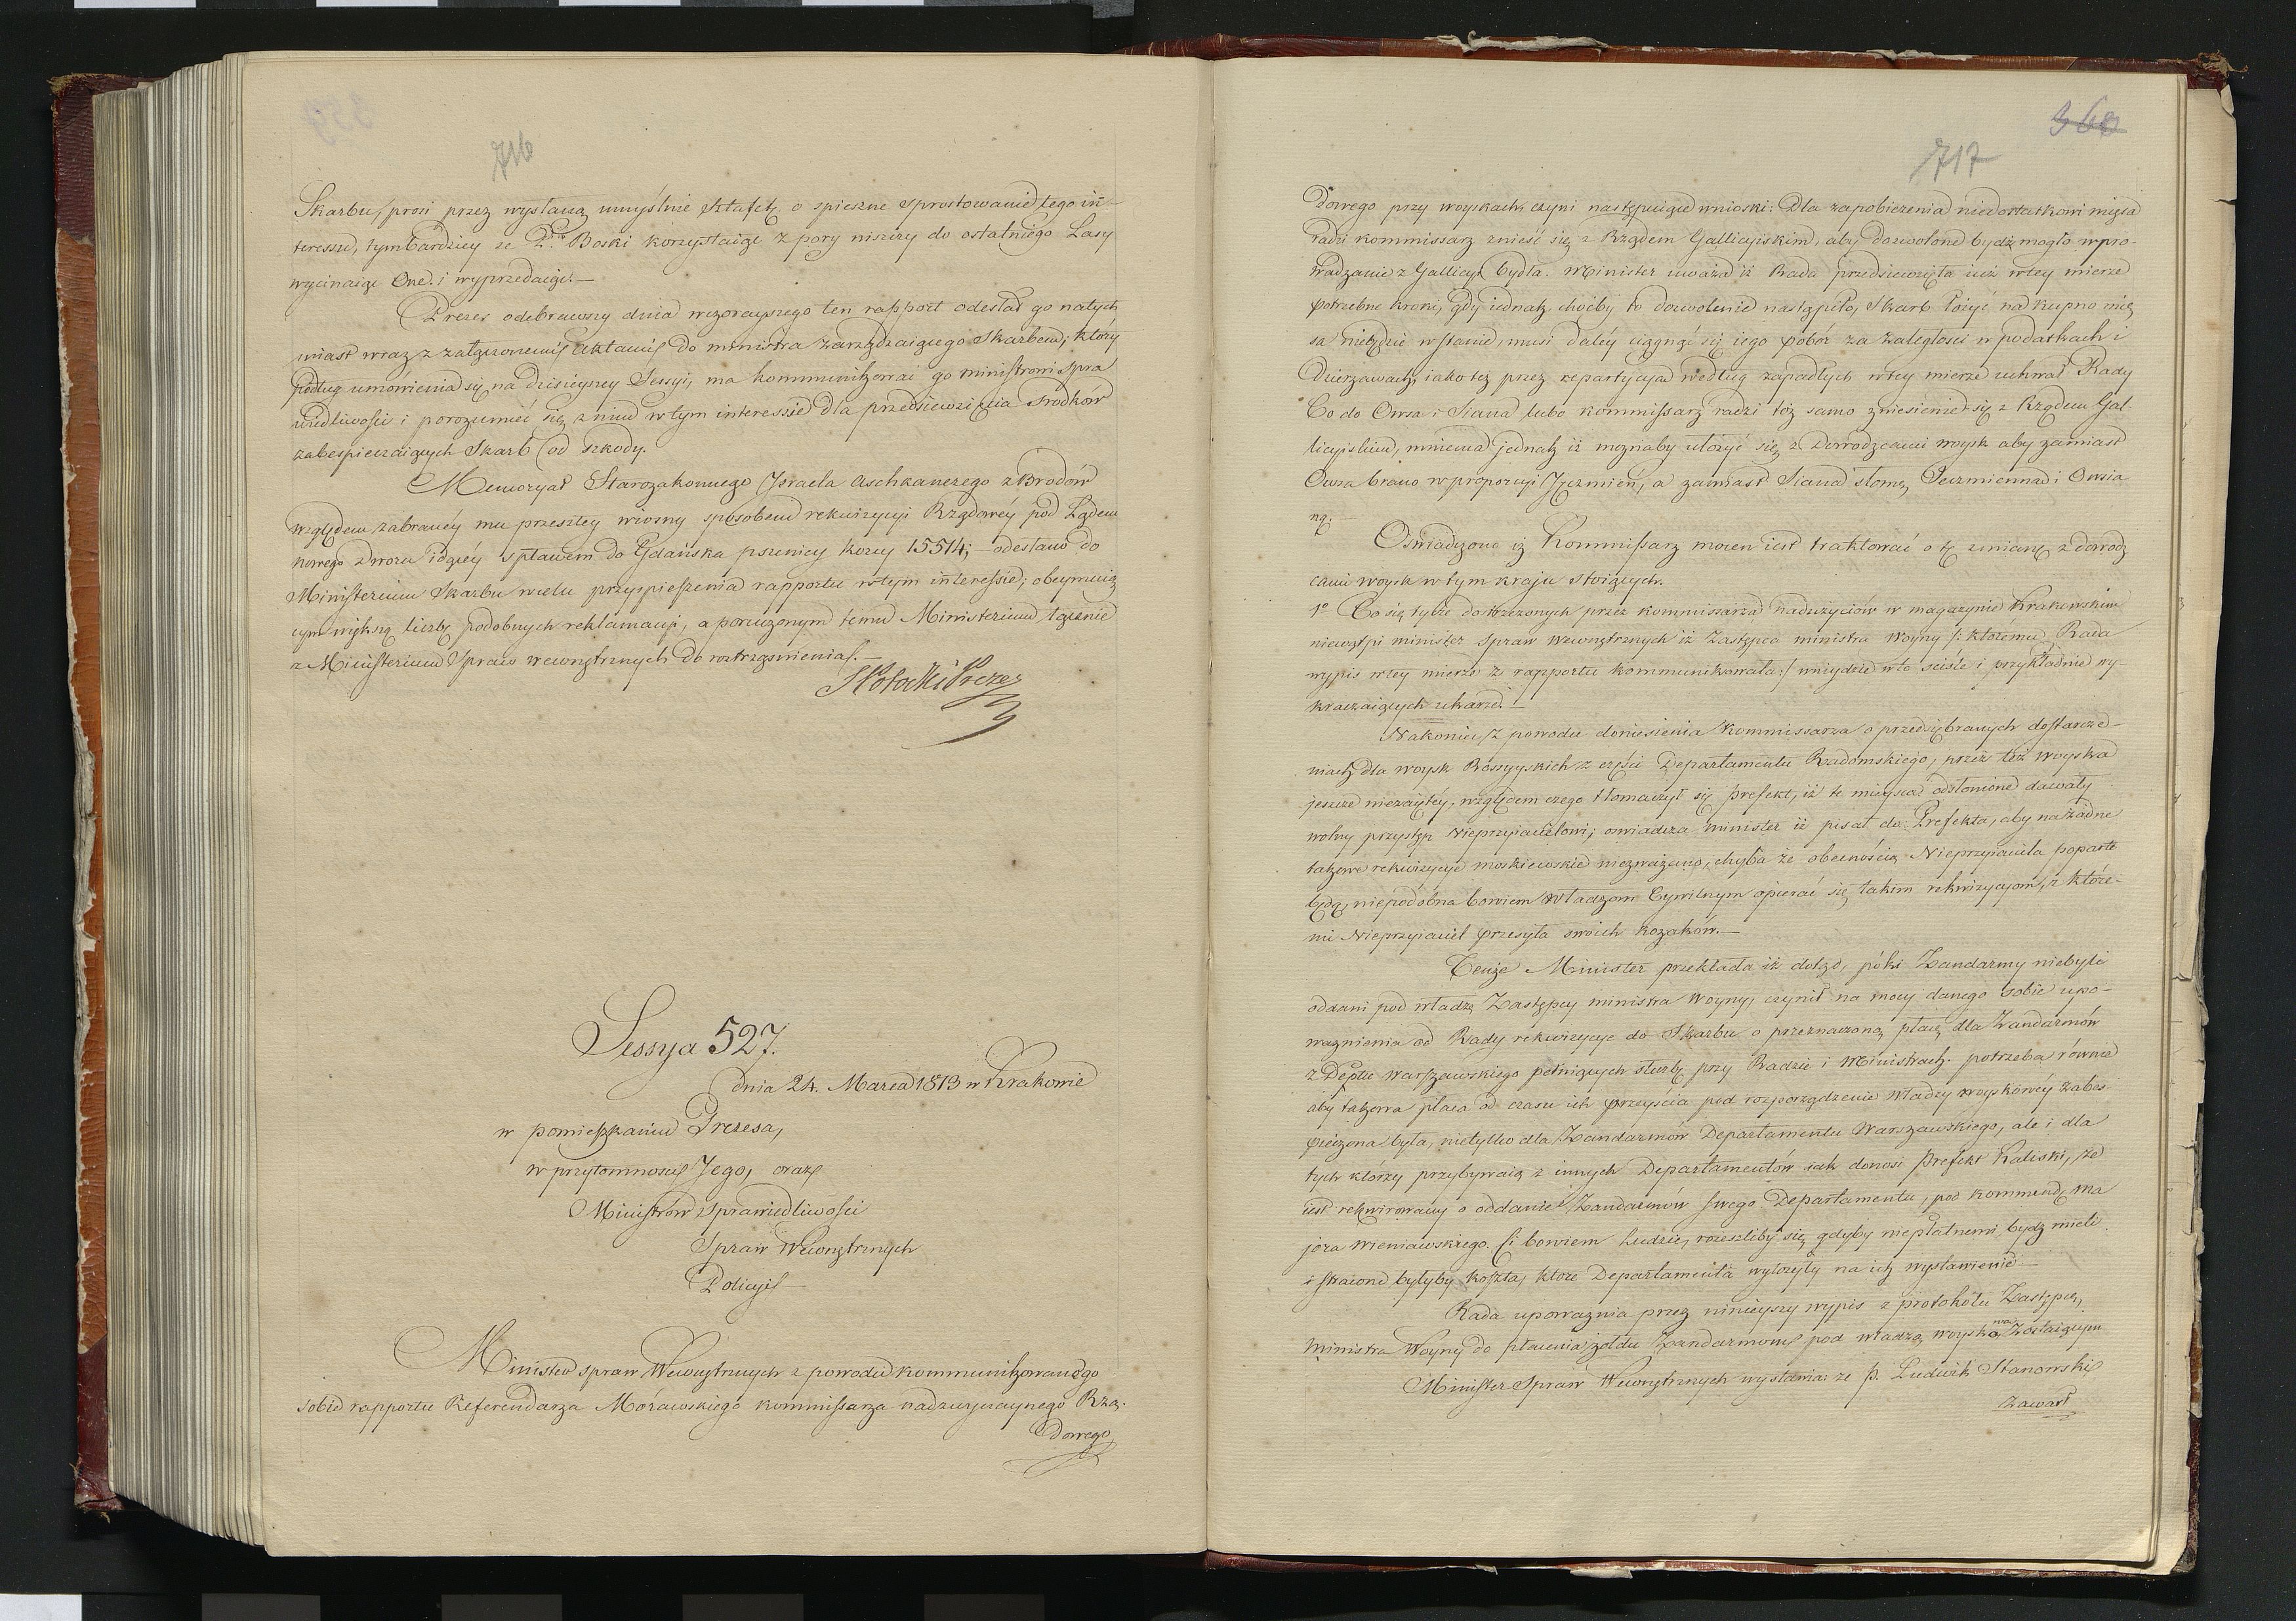 716
Skarbu, prosi przez wysłaną umyślnie sztafetę o spieszne sprostowanie tego in-
teressu, tymbardziey że P. Boski korzystaiąc z pory niszczy do ostatniego Lasy
wycinaiąc One i wyprzedaiąc.—
Prezes odebrawszy dnia wczorayszego ten rapport odesłał go natych
miast wraz z załączonemi aktami do ministra zarządzaiącego Skarbem, który
podług umówienia się na dzisieyszey Sessyi, ma kommunikować go ministrowi Spra
wiedliwości i porozumieć się z nim w tym interessie dla przedsiewzięcia środków
zabespieczaiących Skarb od szkody.
Memoryał Starozakonnego Izraela Aschkanazego z Brodów
względem zabraney mu przeszłey wiosny sposobem rekwizycyi Rządowéy pod Lądem
nowego Dworu idącéy spławem do Gdańska pszenicy korcy 15514; — odesłano do
Ministerium Skarbu wcelu przyspieszenia rapportu w tym interessie, obeymuią
cym większą liczbę podobnych reklamacyi, a poruczonym temu Ministerium łącznie
z Ministerium Spraw wewnętrznych do roztrząsnienia.—
S Potocki Prezes
Sessya 527.
dnia 24. Marca 1813 w Krakowie
w pomieszkaniu Prezesa,
w przytomności Jego, oraz
Ministrów Sprawiedliwości
Spraw Wewnętrznych
Policyi—
Minister spraw Wewnętrznych z powodu kommunikowanego
sobie rapportu Referendarza Morawskiego kommissarza nadzwyczaynego Rzą-
dowego
360
717
dowego przy woyskach, czyni następuiące wnioski: Dla zapobieżenia niedostatkowi mięsa
radzi kommissarz znieść się z Rządem Gallicyiskim, aby dozwolone bydź mogło wpro-
wadzanie z Gallicyi bydła. Minister uważa iż Rada przedsiewzięła iuż w tey mierze
potrzebne kroki, gdy iednak choćby to dozwolenie nastąpiło, Skarb łożyć na kupno mię
sa niebędzie w stanie, musi daléy ciągnąć się iego pobór za zaległości w podatkach i
Dzierzawach, iako też przez repartycyą według zapadłych w tey mierze uchwał Rady
Co do Owsa i Siana lubo kommissarz radzi toż samo zniesienie się z Rządem Gal-
licyiskim, mniema jednak iż możnaby ułożyć się z Dowodzcami woysk aby zamiast
Owsa brano w proporcyi Jęczmień, a zamiast Siana słomę Jęczmienną i Owsia
ną.
Oswiadczono iż Kommissarz mocen iest traktować o tę zmianę z dowodz
cami woysk w tym kraju stoiących.
1º Co się tycze dostrzeżonych przez kommissarza nadużyciów w magazynie Krakowskim
niewątpi minister spraw wewnętrznych iż Zastępca ministra Woyny /: któremu Rada
wypis w tey mierze z rapportu kommunikowała :/ wniydzie w to ściśle i przykładnie wy-
kraczaiących ukarze. —
Nakoniec z powodu doniesienia Kommissarza o przedsiębranych dostarcze-
niach dla woysk Rossyyskich z części Departamentu Radomskiego, przez też woyska
jeszcze niezaiętéy, względem czego tłomaczył się prefekt, iż te mieysca odsłonione dawały
wolny przystęp Nieprzyiacielowi; oswiadcza minister iż pisał do Prefekta, aby na żadne
takowe rekwizycye moskiewskie niezważano, chyba że obecnością Nieprzyiaciela poparte
będą, niepodobna bowiem Władzom Cywilnym opierać się takim rekwizycyom, z które-
mi Nieprzyiaciel przesyła swoich kozaków.—
Tenże Minister przekłada iż dotąd, póki Żandarmy niebyli
oddani pod władzę Zastępcy ministra Woyny, czynił na mocy danego sobie upo-
ważnienia od Rady rekwizycye do Skarbu o przeznaczoną płacę dla Żandarmów
z Deptu Warszawskiego pełniących służbę przy Radzie i Ministrach. potrzeba równie
aby takowa płaca od czasu ich przeyścia pod rozporządzenie władzy woyskowéy zabes-
pieczona była, nietylko dla Żandarmów Departamentu Warszawskiego, ale i dla
tych którzy przybywaią z innych Departamentów iak donosi Prefekt Kaliski, że
iest rekwirowany o oddanie Żandarmów swego Departamentu, pod kommendę ma
jora Wieniawskiego. Ci bowiem ludzie, rozeszliby się gdyby niepłatnemi bydź mieli
i stracone byłyby koszta, które Departamenta wyłożyły na ich wystawienie.—
Rada upoważnia przez ninieyszy wypis z protokółu Zastępcę
Ministra Woyny do płacenia żołdu Żandarmom pod władzą woyskową zostaiącym
Minister Spraw Wewnętrznych wystawia: że p. Ludwik Stanowski
zawarł